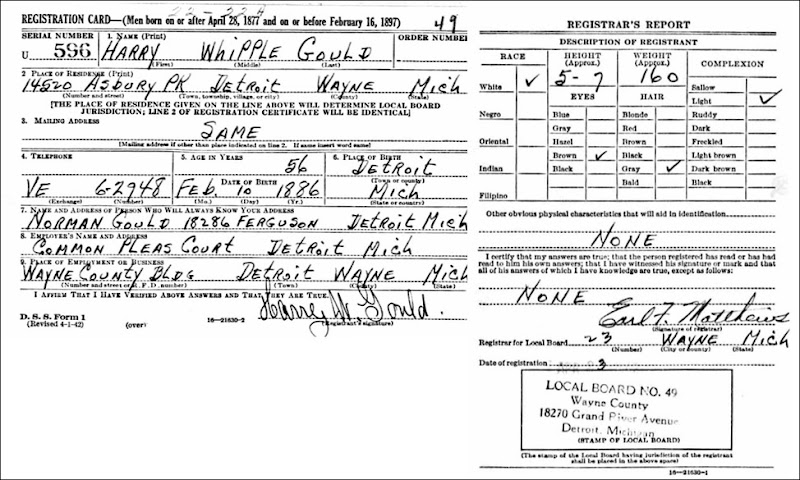 REGISTRATION CARD—(Men born on or after April 28, 1877 and on or before February 16, 1897) 49
SERIAL NUMBER
1. NAME (Print)
ORDER NUMBER
U 596
HARRY WHIPPLE GOULD
(First) (Middle) (Last)
2. PLACE OF RESIDENCE (Print)
14520 ASBURY PK DETROIT WAYNE MICH
(Number and street) (Town, township, village, or city) (County) (State)
[THE PLACE OF RESIDENCE GIVEN ON THE LINE ABOVE WILL DETERMINE LOCAL BOARD
JURISDICTION; LINE 2 OF REGISTRATION CERTIFICATE WILL BE IDENTICAL]
3. MAILING ADDRESS
SAME
[Mailing address if other than place indicated on line 2. If same insert word same]
4. TELEPHONE
5. AGE IN YEARS
6. PLACE OF BIRTH
56
DETROIT
DATE OF BIRTH
(Town or county)
VE 6-2948 FEB. 10 1886 MICH
(Exchange) (Number) (Mo.) (Day) (Yr.) (State or country)
7. NAME AND ADDRESS OF PERSON WHO WILL ALWAYS KNOW YOUR ADDRESS
NORMAN GOULD 18286 FERGUSON DETROIT MICH
8. EMPLOYER'S NAME AND ADDRESS
COMMON PLEAS COURT DETROIT MICH
9. PLACE OF EMPLOYMENT OR BUSINESS
WAYNE COUNTY BLDG DETROIT WAYNE MICH
(Number and street or R. F. D. number) (Town) (County) (State)
I AFFIRM THAT I HAVE VERIFIED ABOVE ANSWERS AND THAT THEY ARE TRUE.
Harry W. Gould.
D. S. S. Form 1
(Revised 4-1-42) (over) 16—21630-2 (Registrant's signature)
REGISTRAR'S REPORT
DESCRIPTION OF REGISTRANT
RACE
HEIGHT (Approx.)
WEIGHT (Approx.)
COMPLEXION
White ✓
5-7
160
Sallow
Light ✓
EYES
HAIR
Negro
Blue
Blonde
Ruddy
Gray
Red
Dark
Oriental
Hazel
Brown
Freckled
Brown ✓
Black
Light brown
Indian
Black
Gray ✓
Dark brown
Bald
Black
Filipino
Other obvious physical characteristics that will aid in identification
NONE
I certify that my answers are true; that the person registered has read or has had
read to him his own answers; that I have witnessed his signature or mark and that
all of his answers of which I have knowledge are true, except as follows:
NONE
Earl F. Matthews
(Signature of registrar)
Registrar for Local Board 23 WAYNE MICH
(Number) (City or county) (State)
Date of registration
LOCAL BOARD NO. 49
Wayne County
18270 Grand River Avenue
Detroit, Michigan
(STAMP OF LOCAL BOARD)
(The stamp of the Local Board having jurisdiction of the registrant
shall be placed in the above space)
16—21630-1